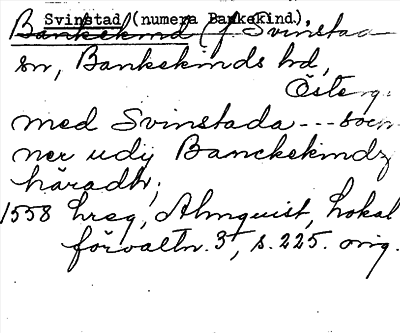 Svinstad (numera Bankekind).
Bankekind (f Svinstad
sn, Bankekinds hd,
Österg.
med Svinstada --- soen
ner udij Banckekindz
häradh;
1558 hreg, Almquist, Lokal
förvaltn. 3, s. 225. orig.